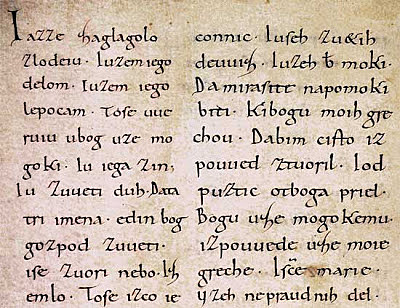 Iazze zaglagolo
zlodeiu · Iuzem iego
delom · Iuzem iego
lepocam · Tose uue
ruiu ubog uze mo
goki · Iu iega zin ·
Iu zuueti duh · Data
tri imena · edin bog
gozpod zuueti ·
ise zuori nebo · Iz
emlo · Tose izco ie
connic · Iuseh zu&ih
deuuih · Iuzeh moki ·
Da mirasite napomoki
biti · Kibogu moih gre
chou · Dabim cisto iz
pouued ztuoril · Iod
puztic otboga priel ·
Bogu uze mogokemu ·
izpouuede uze moie
greche · Isc̄e marie ·
yzeh nepraudnih del ·